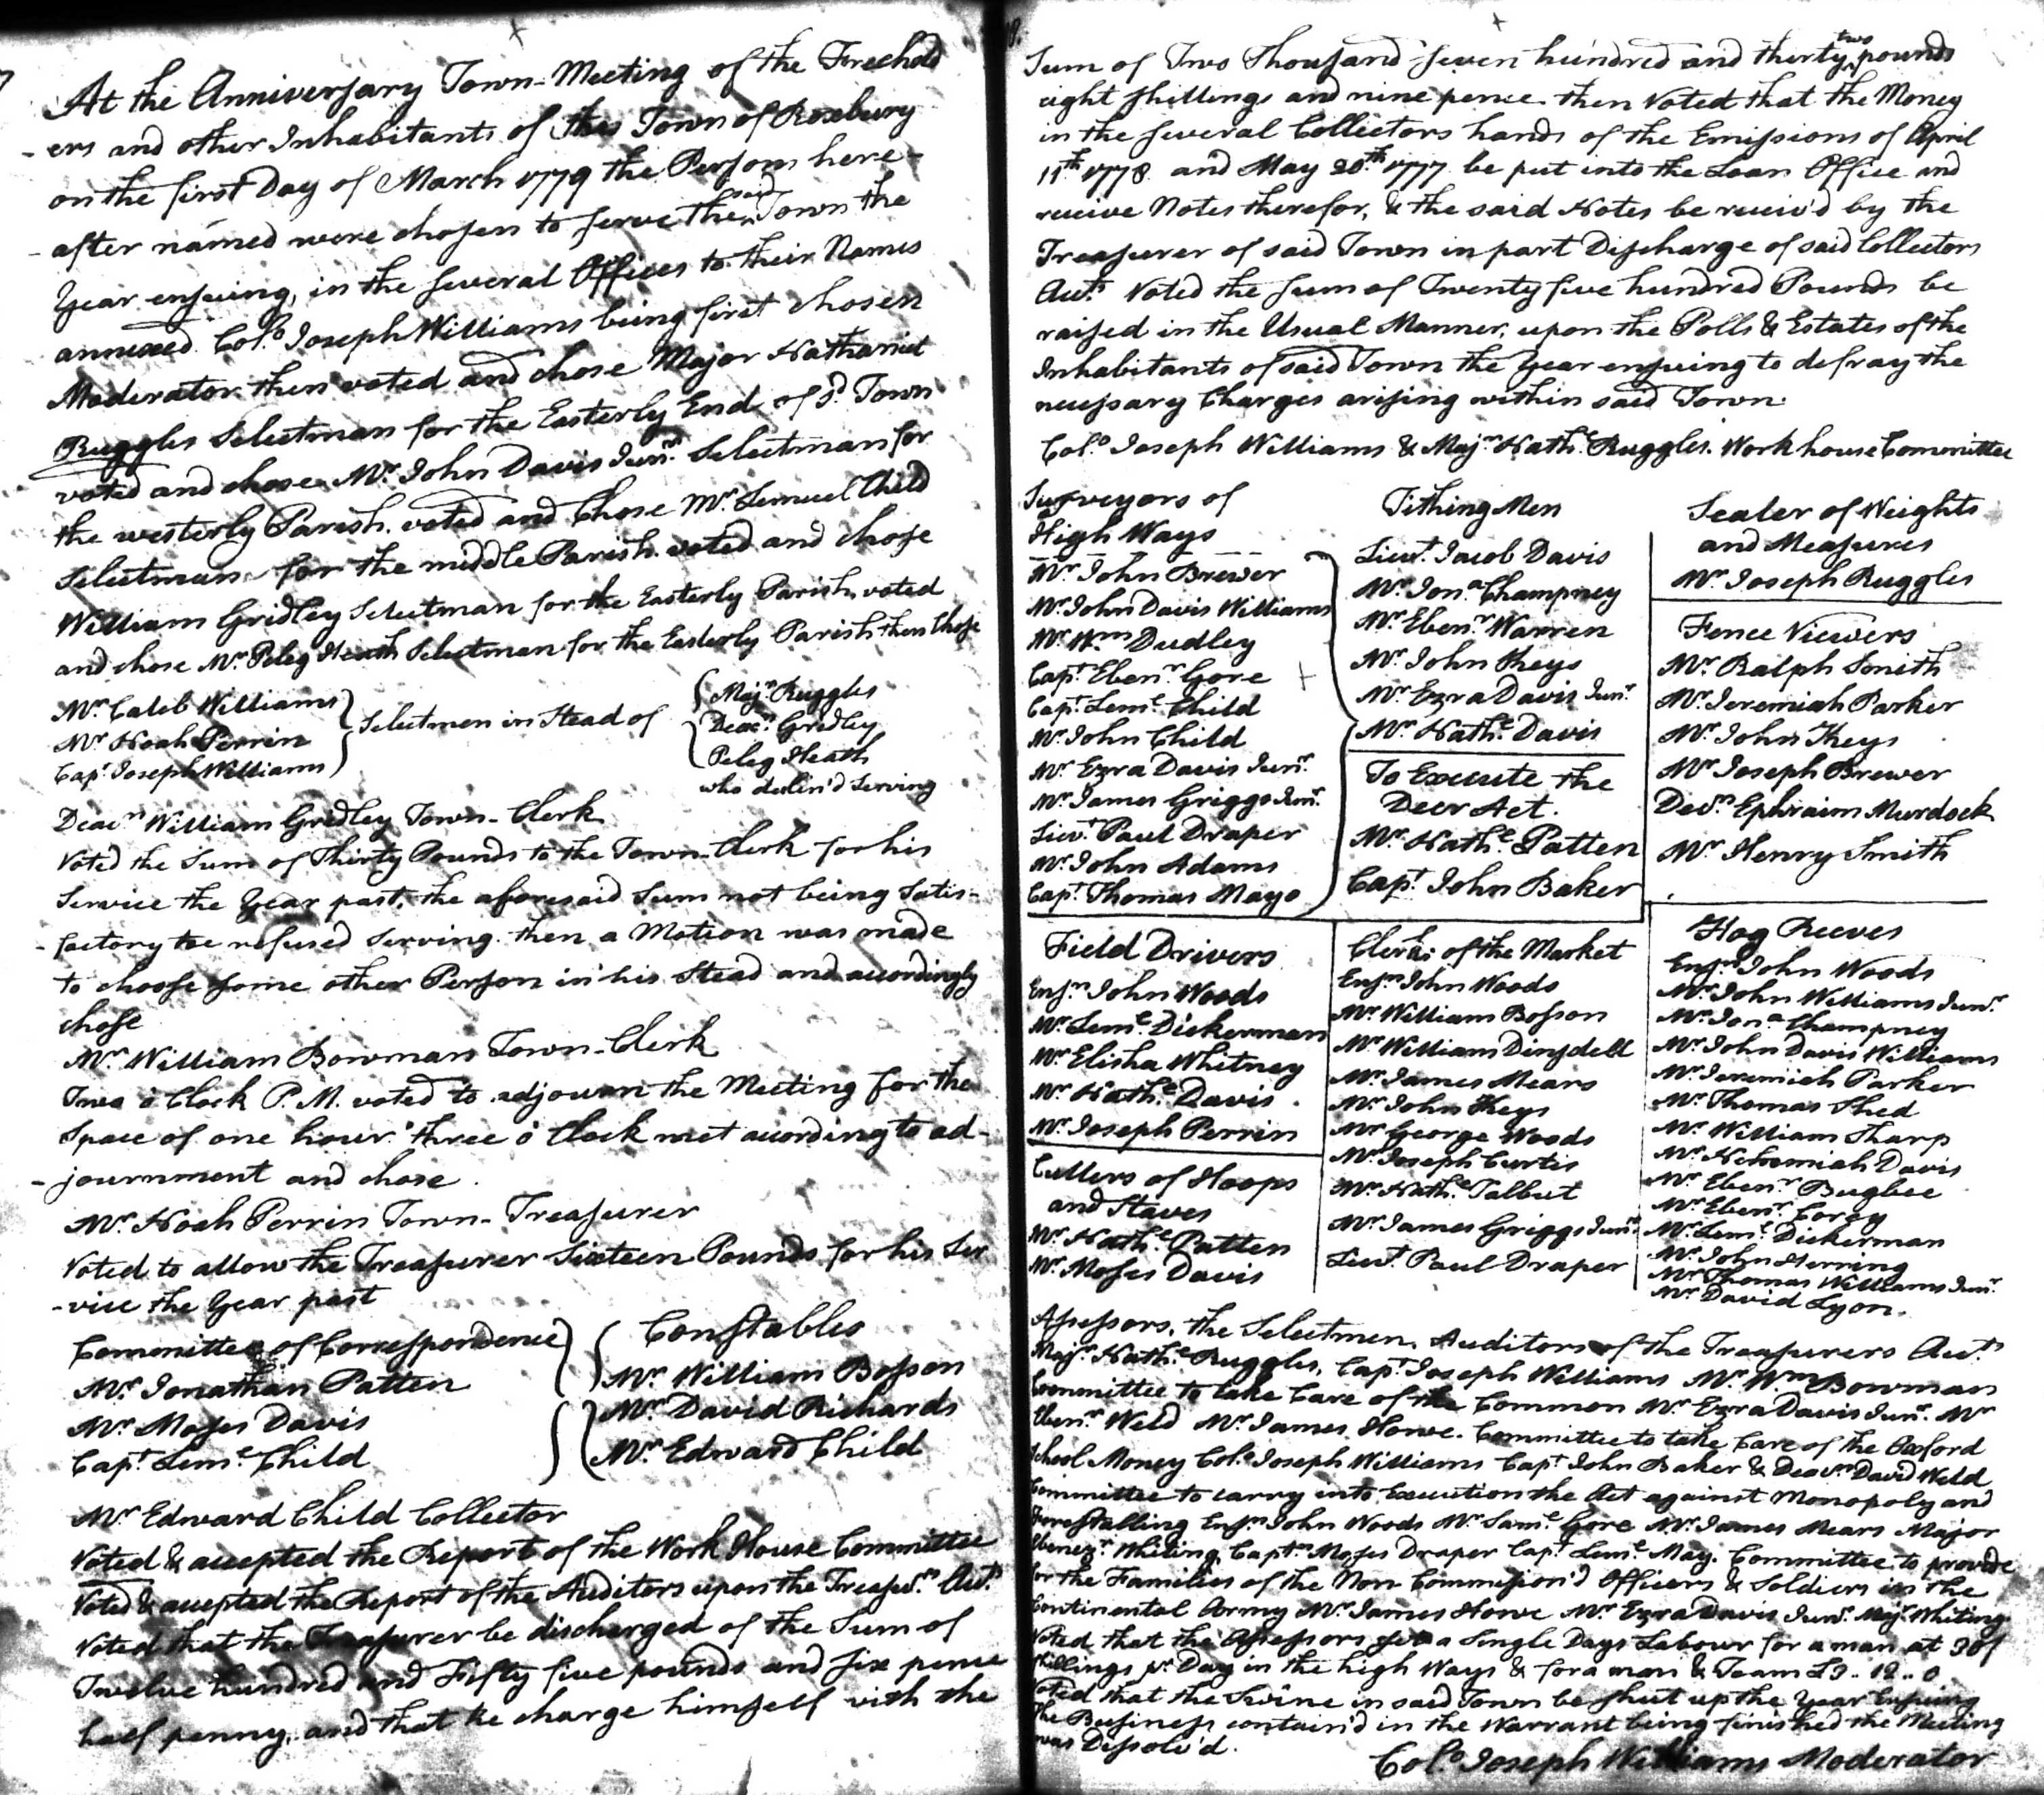 At the Anniversary Town-Meeting of the Freehold
-ers and other Inhabitants of this Town of Roxbury
on the first Day of March 1779 the Persons here-
-after named were chosen to serve the said Town the
Year ensuing, in the several Offices to their Names
annexed. Col.o Joseph Williams being first chosen
Moderator then voted and chose Major Nathaniel
Ruggles Selectman for the Easterly End of s.d Town
voted and chose Mr. John Davis Junr. Selectman for
the westerly Parish. voted and Chose Mr. Lemuel Child
Selectman for the middle Parish. voted and chose
William Gridley Selectman for the Easterly Parish, voted
and chose Mr. Peleg Heath Selectman for the Easterly Parish then Chose
Mr. Caleb Williams
Mr Noah Perrin
Capt Joseph Williams
Selectmen in Stead of
Majr. Ruggles
Deacn. Gridley
Peleg Heath
who declin'd Serving
Deacn William Gridley Town-Clerk
Voted the Sum of Thirty Pounds to the Town-Clerk for his
Service the Year past, the aforesaid Sum not being Satis-
-factory he refused Serving. then a Motion was made
to choose some other Person in his Stead and accordingly
chose
Mr William Bowman Town-Clerk
Two o Clock P.M. voted to adjourn the Meeting for the
Space of one hour. three o Clock met according to ad-
-journment and chose
Mr Noah Perrin Town-Treasurer
Voted to allow the Treasurer Sixteen Pounds for his Ser
-vice the Year past
Committee of Correspondence
Mr. Jonathan Patten
Mr. Moses Davis
Capt. Leml. Child
Constables
Mr. William Bosson
Mr David Richards
Mr. Edward Child
Mr Edward Child Collector
Voted & accepted the Report of the Work House Committee
Voted & accepted the Report of the Auditors upon the Treasurs. Acct.
Voted that the Treasurer be discharged of the Sum of
Twelve hundred and Fifty five pounds and six pence
half penny, and that he charge himself with the
Sum of Two Thousand seven hundred and thirty two pounds
eight shillings and nine pence. then Voted that the Money
in the several Collectors hands of the Emissions of April
11th 1778 and May 20th 1777 be put into the Loan Office and
receive Notes therefor, & the said Notes be receiv'd by the
Treasurer of said Town in part Discharge of said Collectors
Acct. Voted the sum of Twenty five hundred Pounds be
raised in the Usual Manner, upon the Polls & Estates of the
Inhabitants of said Town the Year ensuing to defray the
necessary Charges arising within said Town.
Col.o Joseph Williams & Majr. Nathl. Ruggles. Work house Committee
Surveyors of
High Ways
Mr. John Brewer
Mr. John Davis Williams
Mr. Wm Dudley
Capt Ebenr. Gore
Capt. Leml. Child
Mr. John Child
Mr. Ezra Davis Junr.
Mr. James Griggs Junr.
Lieut. Paul Draper
Mr. John Adams
Capt. Thomas Mayo
Tithing Men
Lieut. Jacob Davis
Mr. Jona. Champney
Mr. Ebenr. Warren
Mr. John Keys
Mr. Ezra Davis Junr.
Mr. Nathl. Davis
To Execute the
Deer Act.
Mr. Nathl. Patten
Capt. John Baker
Sealer of Weights
and Measures
Mr. Joseph Ruggles
Fence Viewers
Mr. Ralph Smith
Mr. Jeremiah Parker
Mr. John Keys
Mr Joseph Brewer
Decn. Ephraim Murdock
Mr Henry Smith
Field Drivers
Ensn. John Woods
Mr. Leml. Dickerman
Mr. Elisha Whitney
Mr. Nathl. Davis
Mr. Joseph Perrin
Cullers of Hoops
and Staves
Mr. Nathl. Patten
Mr. Moses Davis
Clerks of the Market
Ensn. John Woods
Mr. William Bosson
Mr. William Dinsdell
Mr. James Mears
Mr. John Keys
Mr George Woods
Mr. Joseph Curtis
Mr. Nathl. Talbut
Mr. James Griggs Junr.
Lieut. Paul Draper
Hog Reeves
Ensn. John Woods
Mr. John Williams Junr.
Mr. Jona. Champney
Mr. John Davis Williams
Mr. Jeremiah Parker
Mr. Thomas Shed
Mr. William Sharp
Mr. Nehemiah Davis
Mr. Ebenr. Bugbee
Mr. Ebenr. Corey
Mr. Leml. Dickerman
Mr. John Herring
Mr. Thomas Williams Junr.
Mr. David Lyon.
Assessors, the Selectmen. Auditors of the Treasurers Acct.
Majr. Nathl. Ruggles, Capt. Joseph Williams Mr. Wm Bowman
Committee to take Care of the Common Mr. Ezra Davis Junr. Mr
Ebenr. Weld Mr. James Howe. Committee to take Care of the Oxford
School Money Col.o Joseph Williams Capt. John Baker & Deacn. David Weld
Committee to carry into Execution the Act against Monopoly and
Forestalling Ensn. John Woods Mr. Saml. Gore Mr. James Mears Major
Ebenezr. Whiting, Captn. Moses Draper Capt. Leml. May. Committee to provide
for the Families of the Non Commission'd Officers & Soldiers in the
Continental Army Mr. James Howe Mr. Ezra Davis Junr. Majr. Whiting
Voted that the Assessors set a Single Days Labour for a man at 30/
Shillings pr. Day in the high Ways & for a man & Team £3.. 12.. 0
Voted that the Swine in said Town be shut up the Year Ensuing
The Business contain'd in the Warrant being finished the Meeting
was Dissolv'd.
Col.o Joseph Williams Moderator